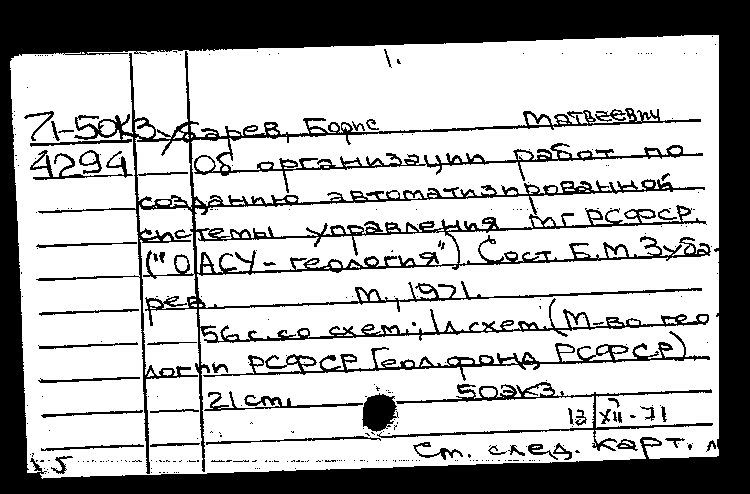 1.
71-50КЗубарев, Борис Матвеевич
4294 Об организации работ по
созданию автоматизированной
системы управления МГ РСФСР.
("ОАСУ-геология"). Сост. Б.М. Зуба-
рев. М., 1971.
56 с. со схем.; 1 л. схем. (М-во гео-
логии РСФСР Геол. фонд РСФСР)
21 cm. 50 экз.
13 XII-71
См. след. карт.